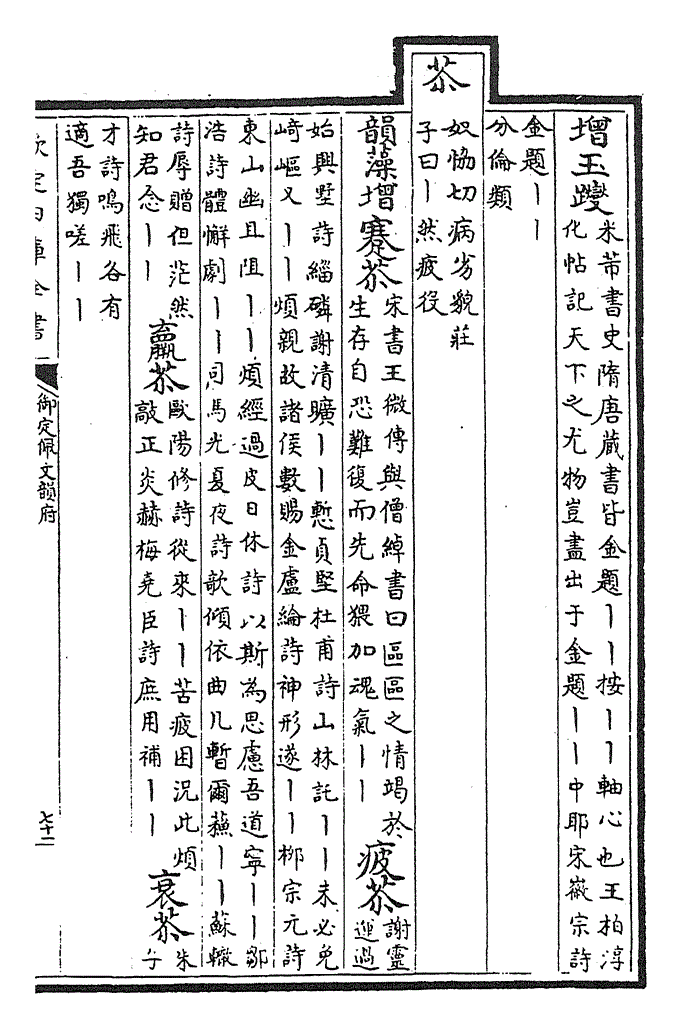 增玉躞
米芾書史隋唐藏書皆金題丨丨按丨丨軸心也王柏淳
化帖記天下之尤物豈盡出于金題丨丨中耶宋徽宗詩
金題丨丨
分倫類
苶
奴協切病劣貌莊
子曰丨然疲役
韻藻增蹇苶
宋書王微傳與僧綽書曰區區之情竭於
生存自恐難復而先命猥加魂氣丨丨
疲苶
謝靈
迎過
始興墅詩緇磷謝清曠丨丨慙貞堅杜甫詩山林託丨丨未必免
崎嶇又丨丨煩親故諸侯數賜金盧綸詩神形遂丨丨柳宗元詩
東山幽且阻丨丨煩經過皮日休詩以斯為思慮吾道寧丨丨鄒
浩詩體懈劇丨丨司馬光夏夜詩欹傾依曲几暫爾蘇丨丨蘇轍
詩辱贈但茫然
知君念丨丨
羸苶
歐陽修詩從來丨丨苦疲困況此煩
敲正炎赫梅堯臣詩庶用補丨丨
衰苶
朱
子
才詩鳴飛各有
適吾獨嗟丨丨
欽定四庫全書
御定佩文韻府
七十二